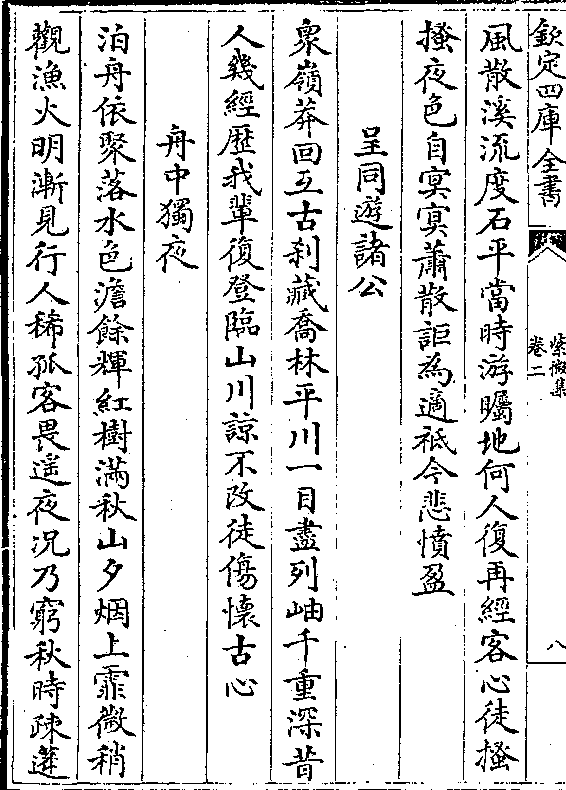 欽定四庫全書
紫微集
卷二
八
風散溪流度石平當時游矚地何人復再經客心徒搔
搔夜色自冥冥蕭散詎為適祗今悲憤盈
呈同遊諸公
衆嶺莽回互古刹藏喬林平川一目盡列岫千重深昔
人幾經歴我輩復登臨山川諒不改徒傷懷古心
舟中獨夜
泊舟依聚落水色澹餘輝紅樹滿秋山夕烟上霏微稍
觀漁火明漸見行人稀孤客畏遥夜况乃窮秋時疎蓬